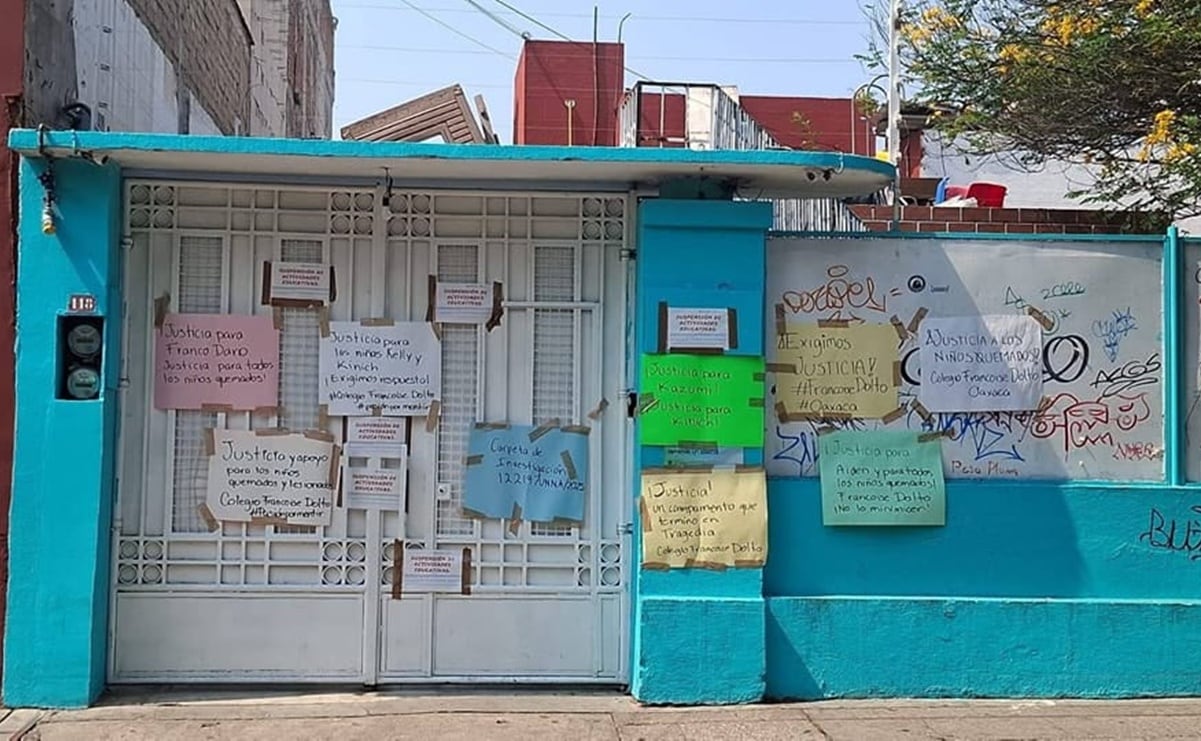 118
SUSPENSIÓN DE
ACTIVIDADES
EDUCATIVAS.
SUSPENSIÓN DE
ACTIVIDADES
EDUCATIVAS.
Justicia para
Franco Dano
Justicia para todos
los niños quemados!
Justicia para
los niños Kelly y
Kinich
¡Exigimos respuesto!
#Colegio Francoise Dolto
Justicia y apoyo
para los niños
quemados y lesionados
Colegio Francoise Dolto
#Pecadopormentir
SUSPENSIÓN DE
ACTIVIDADES
EDUCATIVAS.
SUSPENSIÓN DE
ACTIVIDADES
EDUCATIVAS.
Carpeta de
Investigación
SUSPENSIÓN DE
ACTIVIDADES
EDUCATIVAS.
SUSPENSIÓN DE
ACTIVIDADES
EDUCATIVAS.
¡Justicia para
Kazumi!
Justicia para
Kinich!
¡Justicia!
un campamento que
termino en
Tragedia
Colegio Francoise Dolto
¡Exigimos
JUSTICIA!
#Francoise Dolto
#Oaxaca
¡JUSTICIA A LOS
NIÑOS QUEMADOS!
Colegio Francoise Dolto
Oaxaca
¡Justicia para
Aiden y para todos
los niños quemados!
Francoise Dolto
¡No lo minimicen!